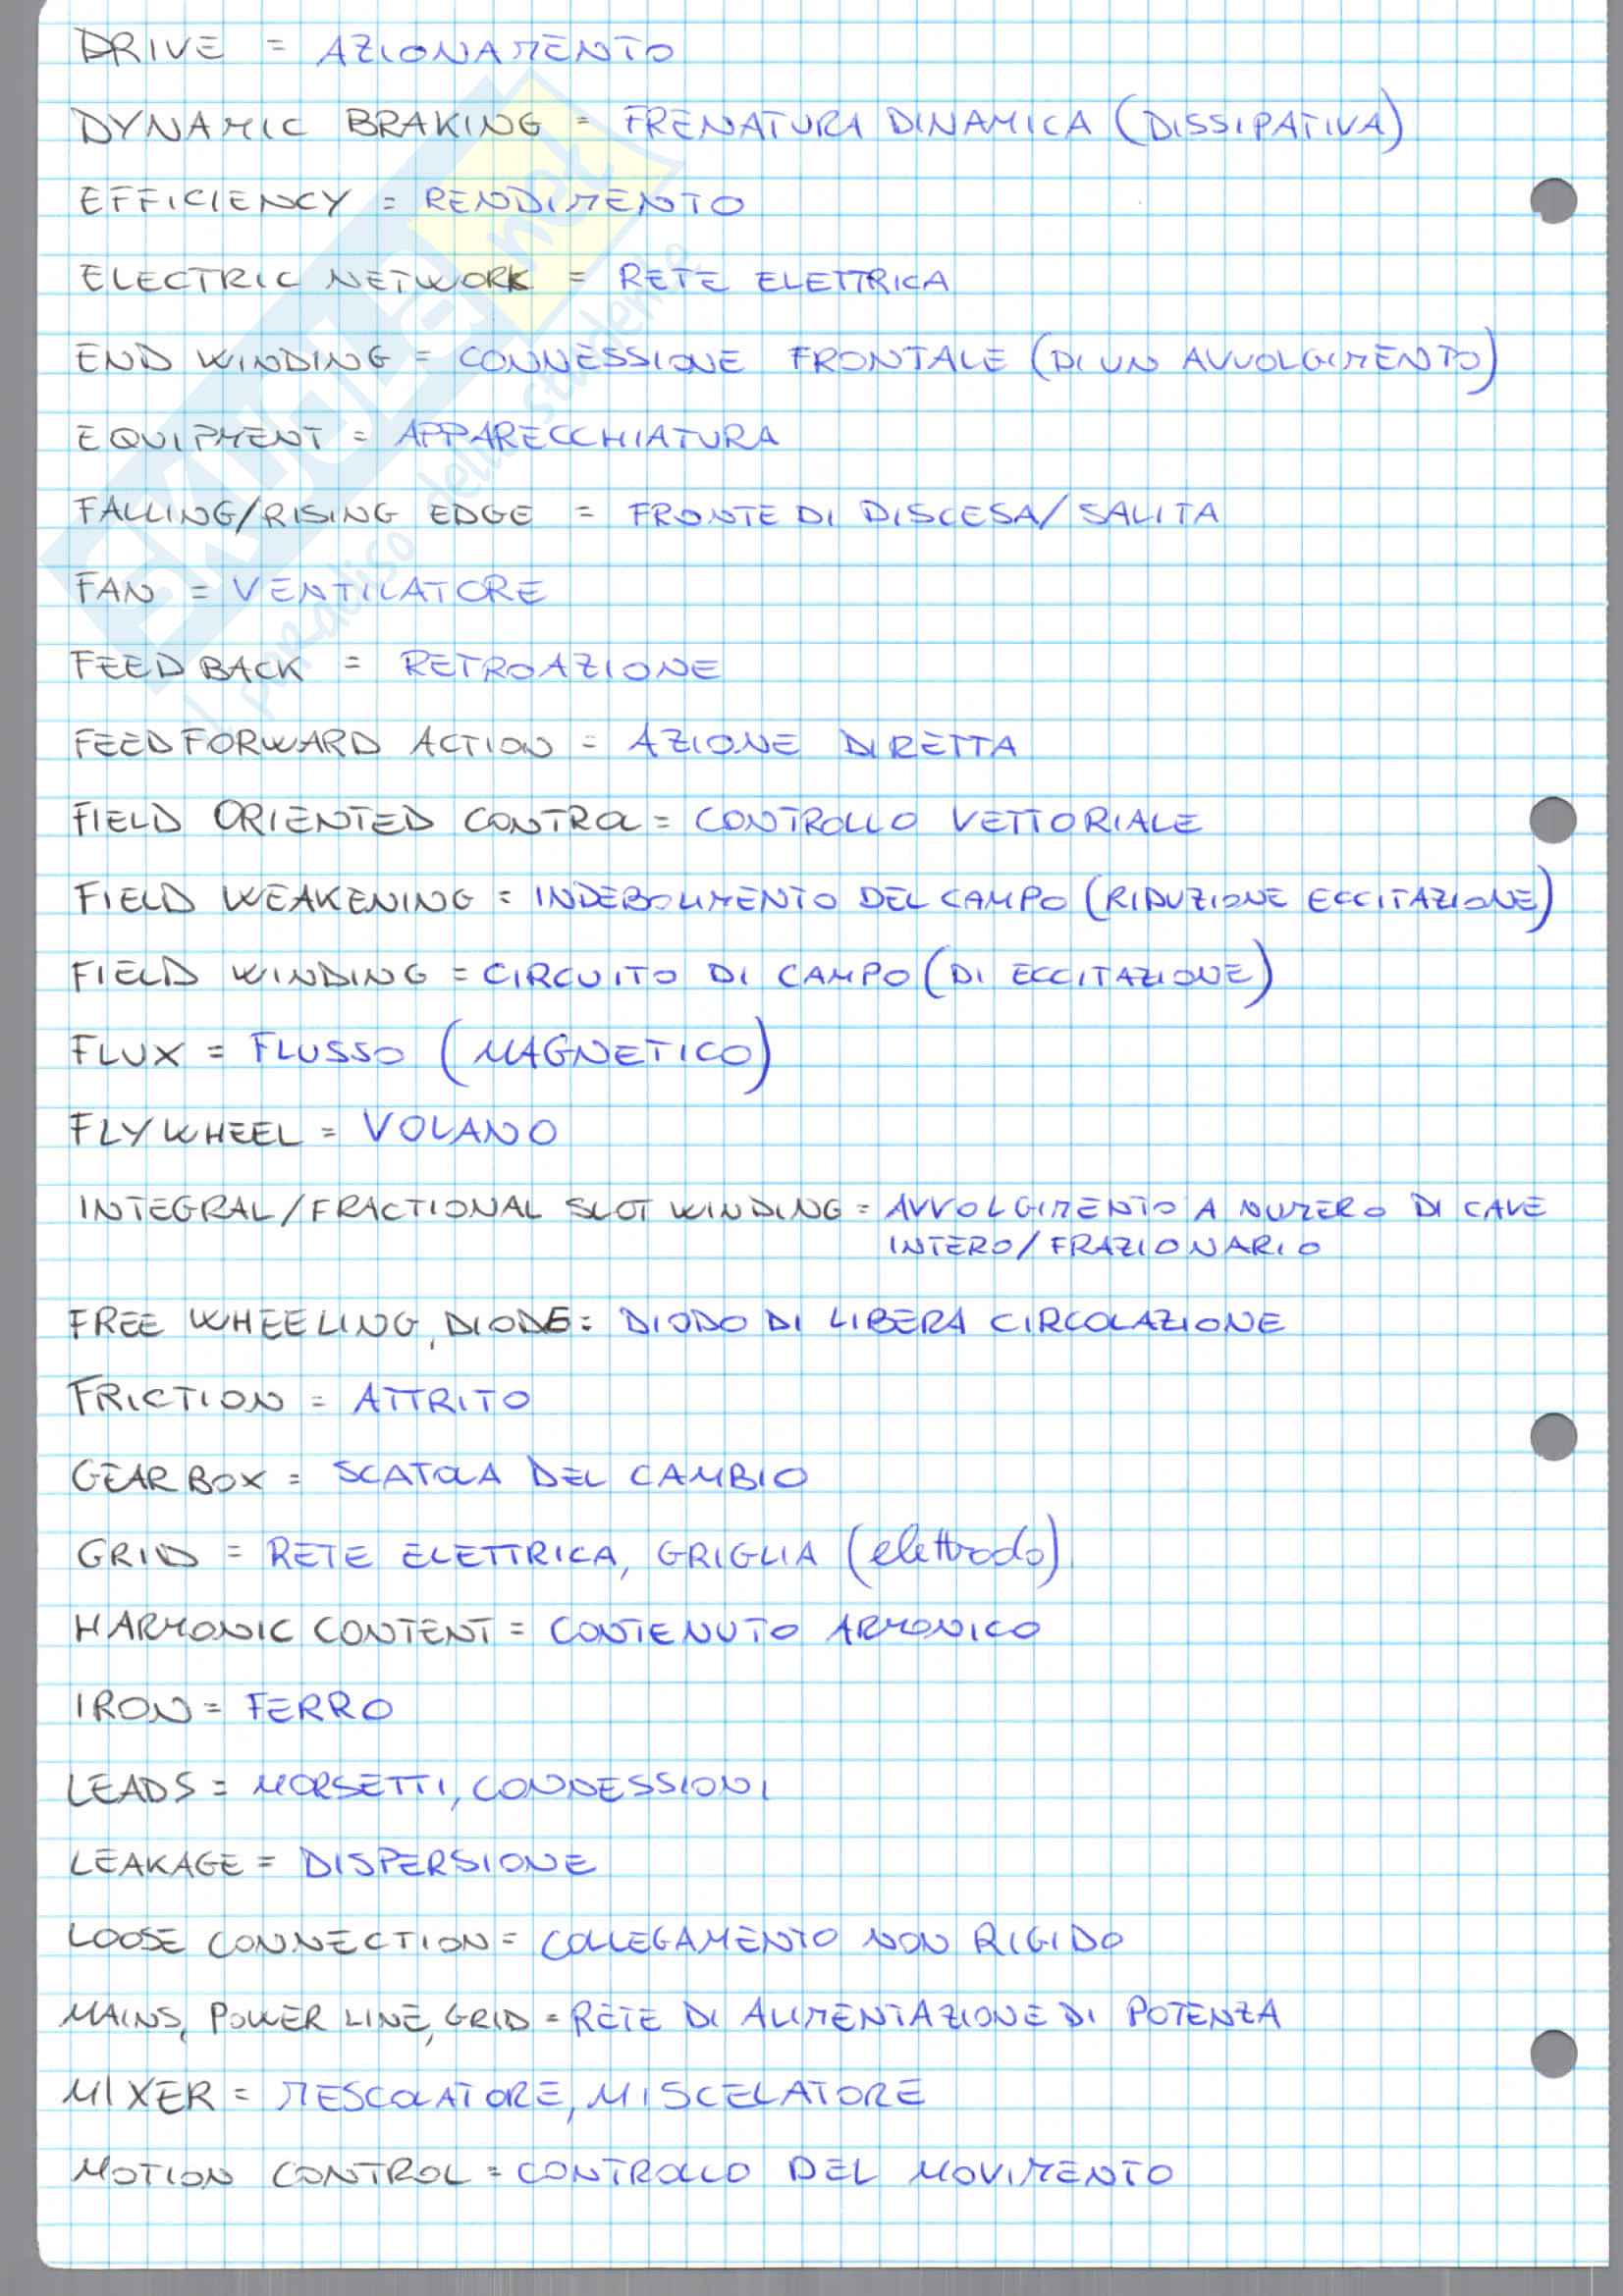 DRIVE = AZIONAMENTO
DYNAMIC BRAKING = FRENATURA DINAMICA (DISSIPATIVA)
EFFICIENCY = RENDIMENTO
ELECTRIC NETWORK = RETE ELETTRICA
END WINDING = CONNESSIONE FRONTALE (DI UN AVVOLGIMENTO)
EQUIPMENT = APPARECCHIATURA
FALLING/RISING EDGE = FRONTE DI DISCESA/SALITA
FAN = VENTILATORE
FEEDBACK = RETROAZIONE
FEEDFORWARD ACTION = AZIONE DIRETTA
FIELD ORIENTED CONTROL = CONTROLLO VETTORIALE
FIELD WEAKENING = INDEBOLIMENTO DEL CAMPO (RIDUZIONE ECCITAZIONE)
FIELD WINDING = CIRCUITO DI CAMPO (DI ECCITAZIONE)
FLUX = FLUSSO (MAGNETICO)
FLYWHEEL = VOLANO
INTEGRAL/FRACTIONAL SLOT WINDING = AVVOLGIMENTO A NUMERO DI CAVE
INTERO/FRAZIONARIO
FREE WHEELING DIODE = DIODO DI LIBERA CIRCOLAZIONE
FRICTION = ATTRITO
GEAR BOX = SCATOLA DEL CAMBIO
GRID = RETE ELETTRICA, GRIGLIA (elettrodo)
HARMONIC CONTENT = CONTENUTO ARMONICO
IRON = FERRO
LEADS = MORSETTI, CONNESSIONI
LEAKAGE = DISPERSIONE
LOOSE CONNECTION = COLLEGAMENTO NON RIGIDO
MAINS, POWER LINE, GRID = RETE DI ALIMENTAZIONE DI POTENZA
MIXER = MESCOLATORE, MISCELATORE
MOTION CONTROL = CONTROLLO DEL MOVIMENTO
SKUOLA.net
il paradiso dello studente